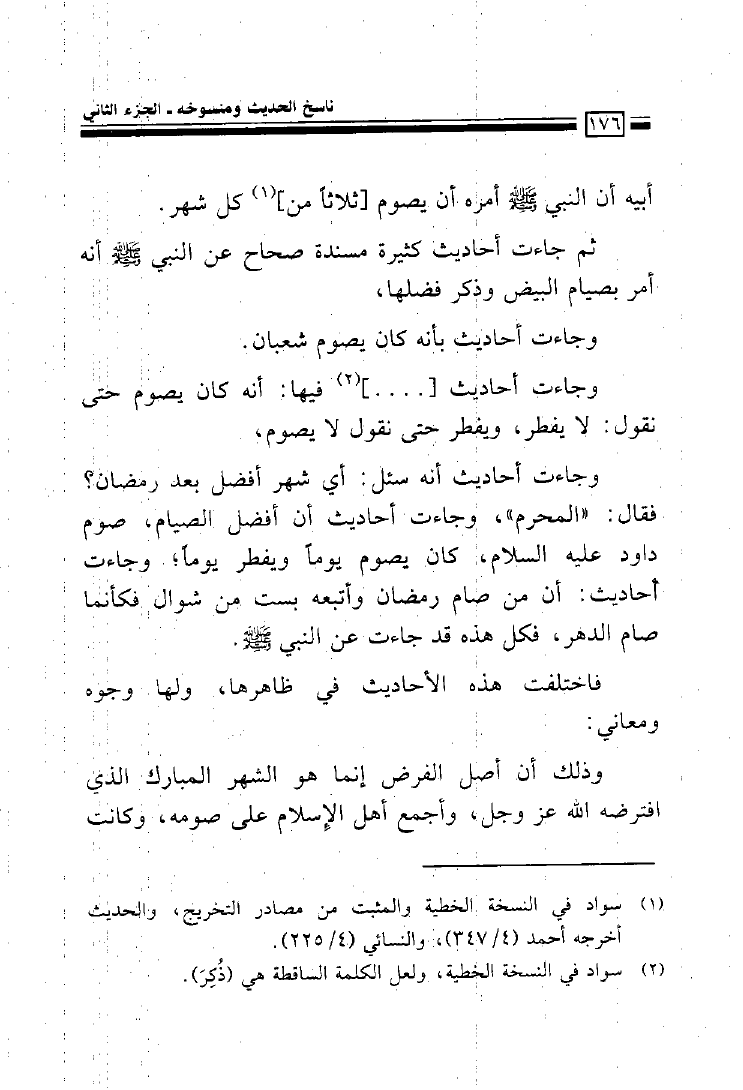 ناسخ الحديث ومنسوخه ـ الجزء الثاني
١٧٦
أبيه أن النبي ﷺ أمره أن يصوم [ثلاثاً من](١) كل شهر.
ثم جاءت أحاديث كثيرة مسندة صحاح عن النبي ﷺ أنه
أمر بصيام البيض وذكر فضلها،
وجاءت أحاديث بأنه كان يصوم شعبان.
وجاءت أحاديث [....](٢) فيها: أنه كان يصوم حتى
نقول: لا يفطر، ويفطر حتى نقول لا يصوم،
وجاءت أحاديث أنه سئل: أي شهر أفضل بعد رمضان؟
فقال: «المحرم»، وجاءت أحاديث أن أفضل الصيام، صوم
داود عليه السلام، كان يصوم يوماً ويفطر يوماً؛ وجاءت
أحاديث: أن من صام رمضان وأتبعه بست من شوال فكأنما
صام الدهر، فكل هذه قد جاءت عن النبي ﷺ.
فاختلفت هذه الأحاديث في ظاهرها، ولها وجوه
ومعاني:
وذلك أن أصل الفرض إنما هو الشهر المبارك الذي
افترضه الله عز وجل، وأجمع أهل الإسلام على صومه، وكانت
(١) سواد في النسخة الخطية والمثبت من مصادر التخريج، والحديث
أخرجه أحمد (٣٤٧/٤)، والنسائي (٢٢٥/٤).
(٢) سواد في النسخة الخطية، ولعل الكلمة الساقطة هي (ذُكِرَ).